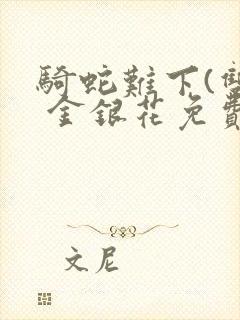 騎蛇難下(雙
金銀花免費
文尼